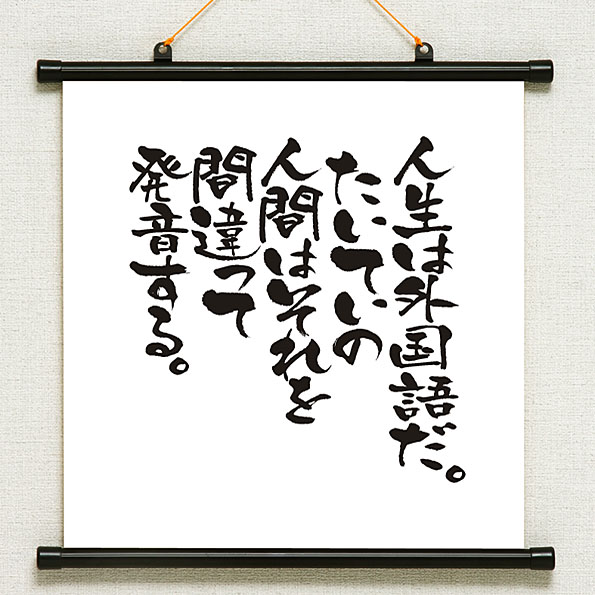 人生は外国語だ。
たいていの
人間はそれを
間違って
発音する。